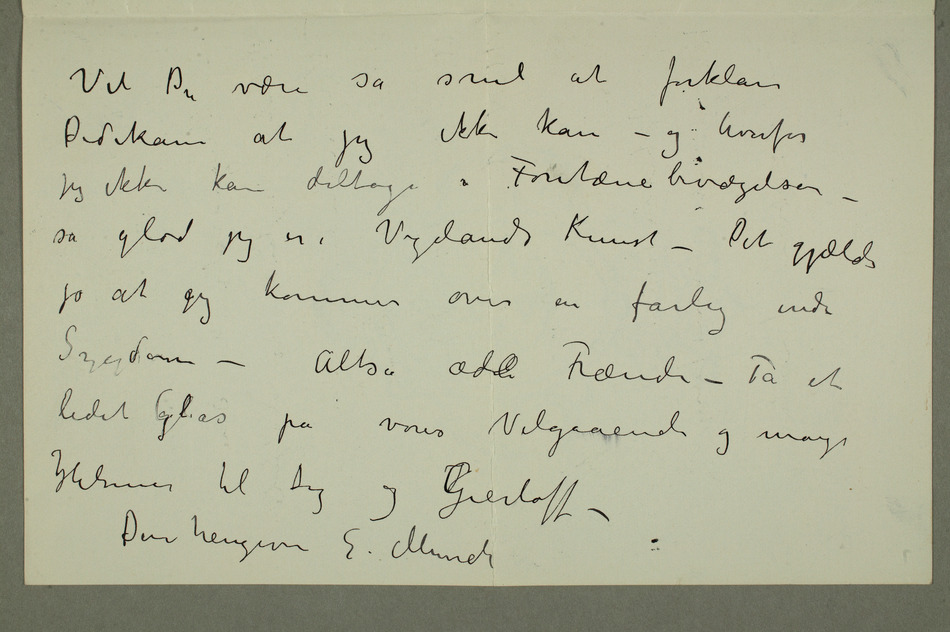 Vil Du være så snil at forklare
Dedekam at jeg ikke kan – og hvorfor
jeg ikke kan deltage i Fontænebevægelsen –
så glad jeg er i Vigelands Kunst – Det gjælder
jo at jeg kommer over en farlig indre
Sygdom – Altså ædle Frænde – Ta et
lidet Glas på vores Velgaaende og mange
Hilsner til dig og Gierløff –
Din hengivne E. Munch